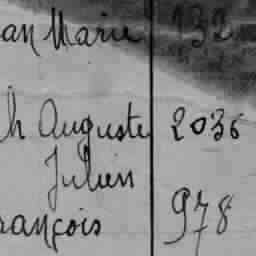 an Marie 132
h Auguste 2036
Julien
rançois 978